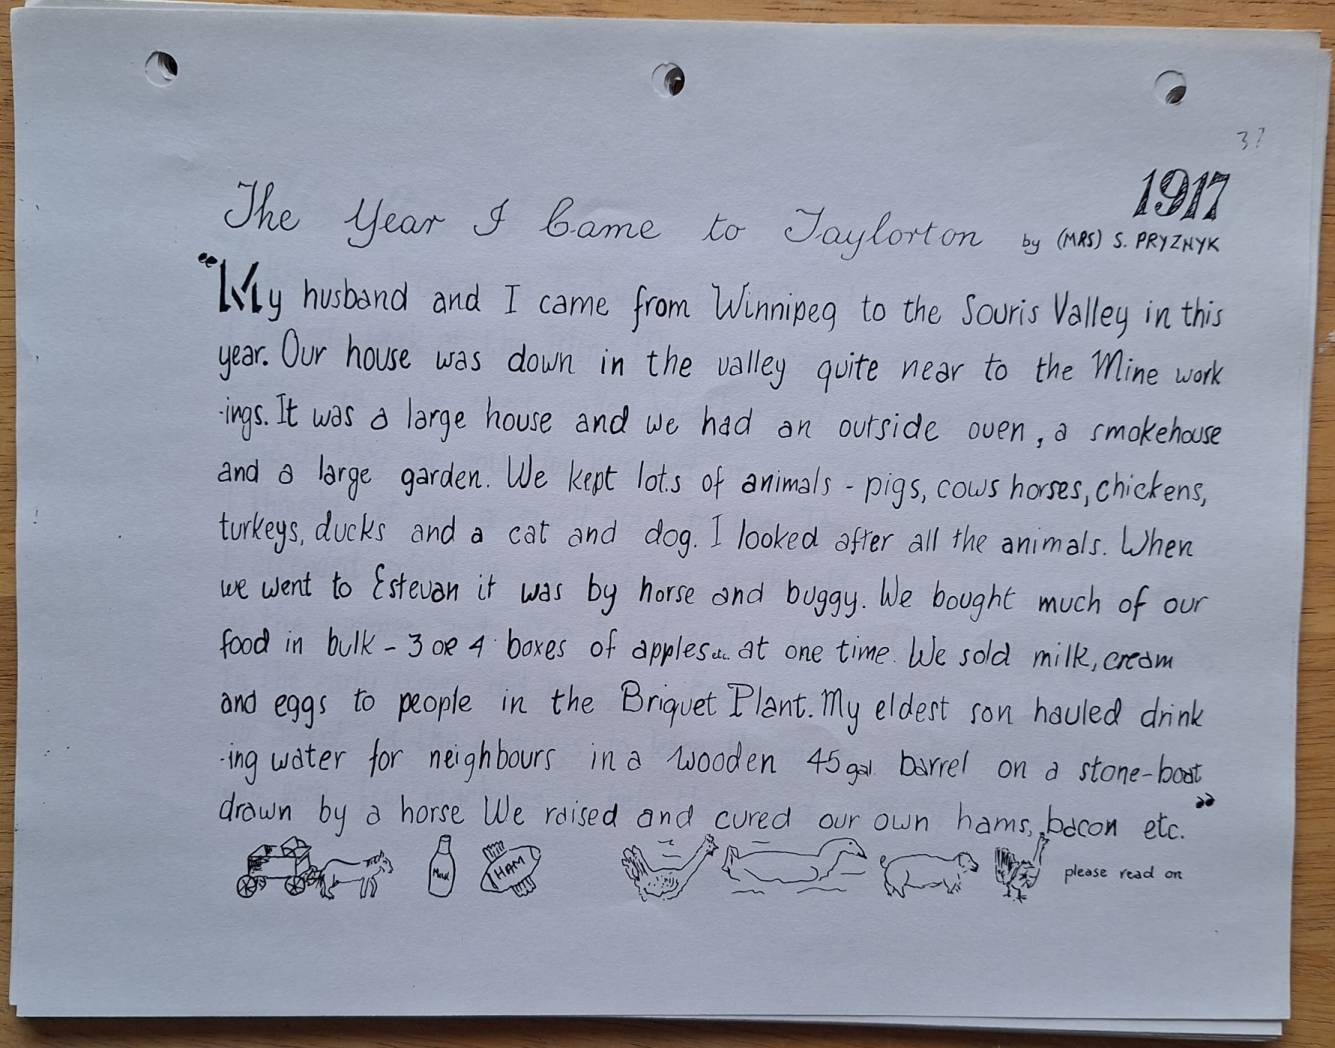 37
1917
The Year I Came to Taylorton by (MRS) S. PRYZNYK
"My husband and I came from Winnipeg to the Souris Valley in this
year. Our house was down in the valley quite near to the Mine work
-ings. It was a large house and we had an outside oven, a smokehouse
and a large garden. We kept lots of animals - pigs, cows horses, chickens,
turkeys, ducks and a cat and dog. I looked after all the animals. When
we went to Estevan it was by horse and buggy. We bought much of our
food in bulk - 3 OR 4 boxes of apples etc. at one time. We sold milk, cream
and eggs to people in the Briquet Plant. My eldest son hauled drink
-ing water for neighbours in a wooden 45 gal barrel on a stone-boat
drawn by a horse We raised and cured our own hams, bacon etc."
Milk
HAM
please read on